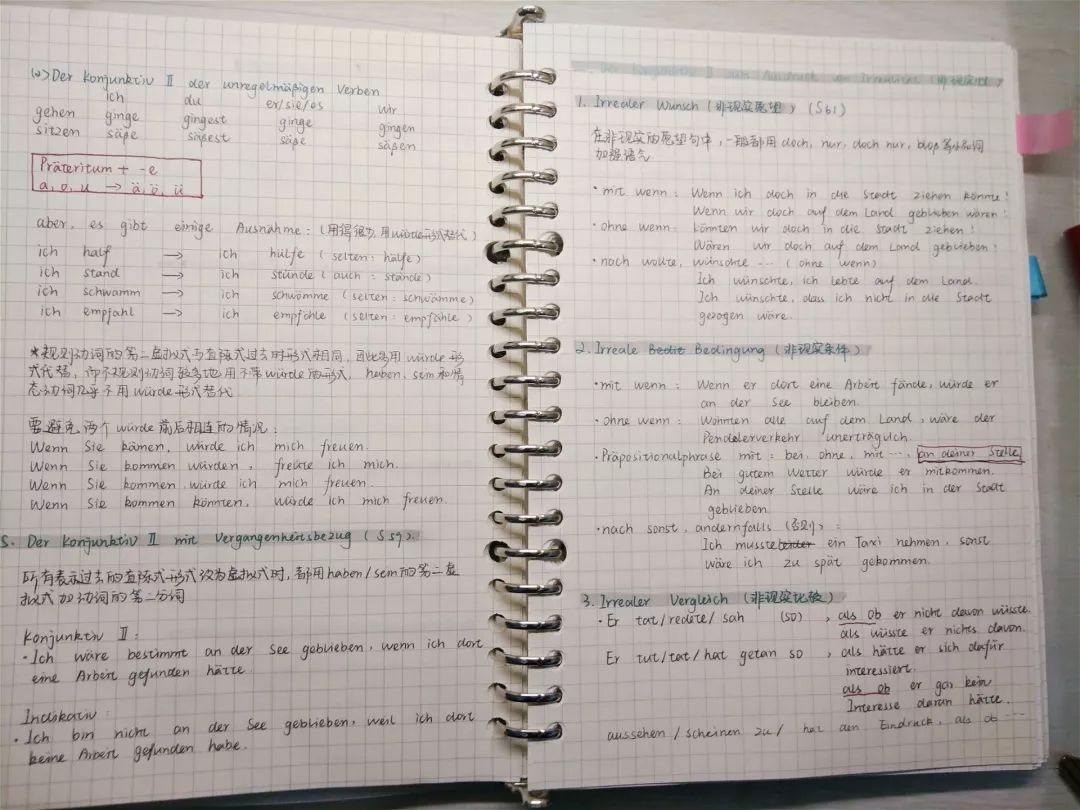 (2) Der Konjunktiv II der unregelmäßigen Verben
ich du er/sie/es wir
gehen ginge gingest ginge gingen
sitzen säße säßest säße säßen
Präteritum + -e
a, o, u → ä, ö, ü
aber, es gibt einige Ausnahme: (用得很少, 用würde形式替代)
ich half → ich hülfe (selten: hälfe)
ich stand → ich stünde (auch: stände)
ich schwamm → ich schwömme (selten: schwämme)
ich empfahl → ich empföhle (selten: empfähle)
*规则动词的第二虚拟式与直陈式过去时形式相同, 因此多用 würde 形
式代替, 而不规则动词较多地用不带würde的形式, haben, sein和情
态动词几乎不用würde形式替代
要避免两个würde前后相连的情况:
Wenn Sie kämen, würde ich mich freuen.
Wenn Sie kommen würden, freute ich mich.
Wenn Sie kommen, würde ich mich freuen.
Wenn Sie kommen könnten, würde ich mich freuen.
5. Der Konjunktiv II mit Vergangenheitsbezug (S59).
所有表示过去的直陈式形式设为虚拟式时, 都用haben/sein的第二虚
拟式加动词的第二分词
Konjunktiv II:
· Ich wäre bestimmt an der See geblieben, wenn ich dort
eine Arbeit gefunden hätte.
Indikativ:
· Ich bin nicht an der See geblieben, weil ich dort
keine Arbeit gefunden habe.
Der Konjunktiv II zum Ausdruck von Irrealität (非现实性)
1. Irrealer Wunsch (非现实愿望) (S61)
在非现实的愿望句中, 一般都用 doch, nur, doch nur, bloß 等小品词
加强语气
· mit wenn: Wenn ich doch in die Stadt ziehen könnte!
Wenn wir doch auf dem Land geblieben wären!
· ohne wenn: Könnten wir doch in die Stadt ziehen!
Wären wir doch auf dem Land geblieben!
· nach wollte, wünschte ... (ohne wenn)
Ich wünschte, ich lebte auf dem Land.
Ich wünschte, dass ich nicht in die Stadt
gezogen wäre.
2. Irreale Bedingung (非现实条件)
· mit wenn: Wenn er dort eine Arbeit fände, würde er
an der See bleiben.
· ohne wenn: Wohnten alle auf dem Land, wäre der
Pendelerverkehr unerträglich.
· Präpositionalphrase mit: bei, ohne, mit ..., an deiner Stelle
Bei gutem Wetter würde er mitkommen.
An deiner Stelle wäre ich in der Stadt
geblieben
· nach sonst, andernfalls (否则):
Ich musste leider ein Taxi nehmen, sonst
wäre ich zu spät gekommen.
3. Irrealer Vergleich (非现实比较)
· Er tat/redete/sah (so), als ob er nicht davon wüsste.
als wüsste er nichts davon.
Er tut/tat/hat getan so, als hätte er sich dafür
interessiert.
als ob er gar kein
Interesse daran hätte.
aussehen / scheinen zu / hat den Eindruck, als ob ...